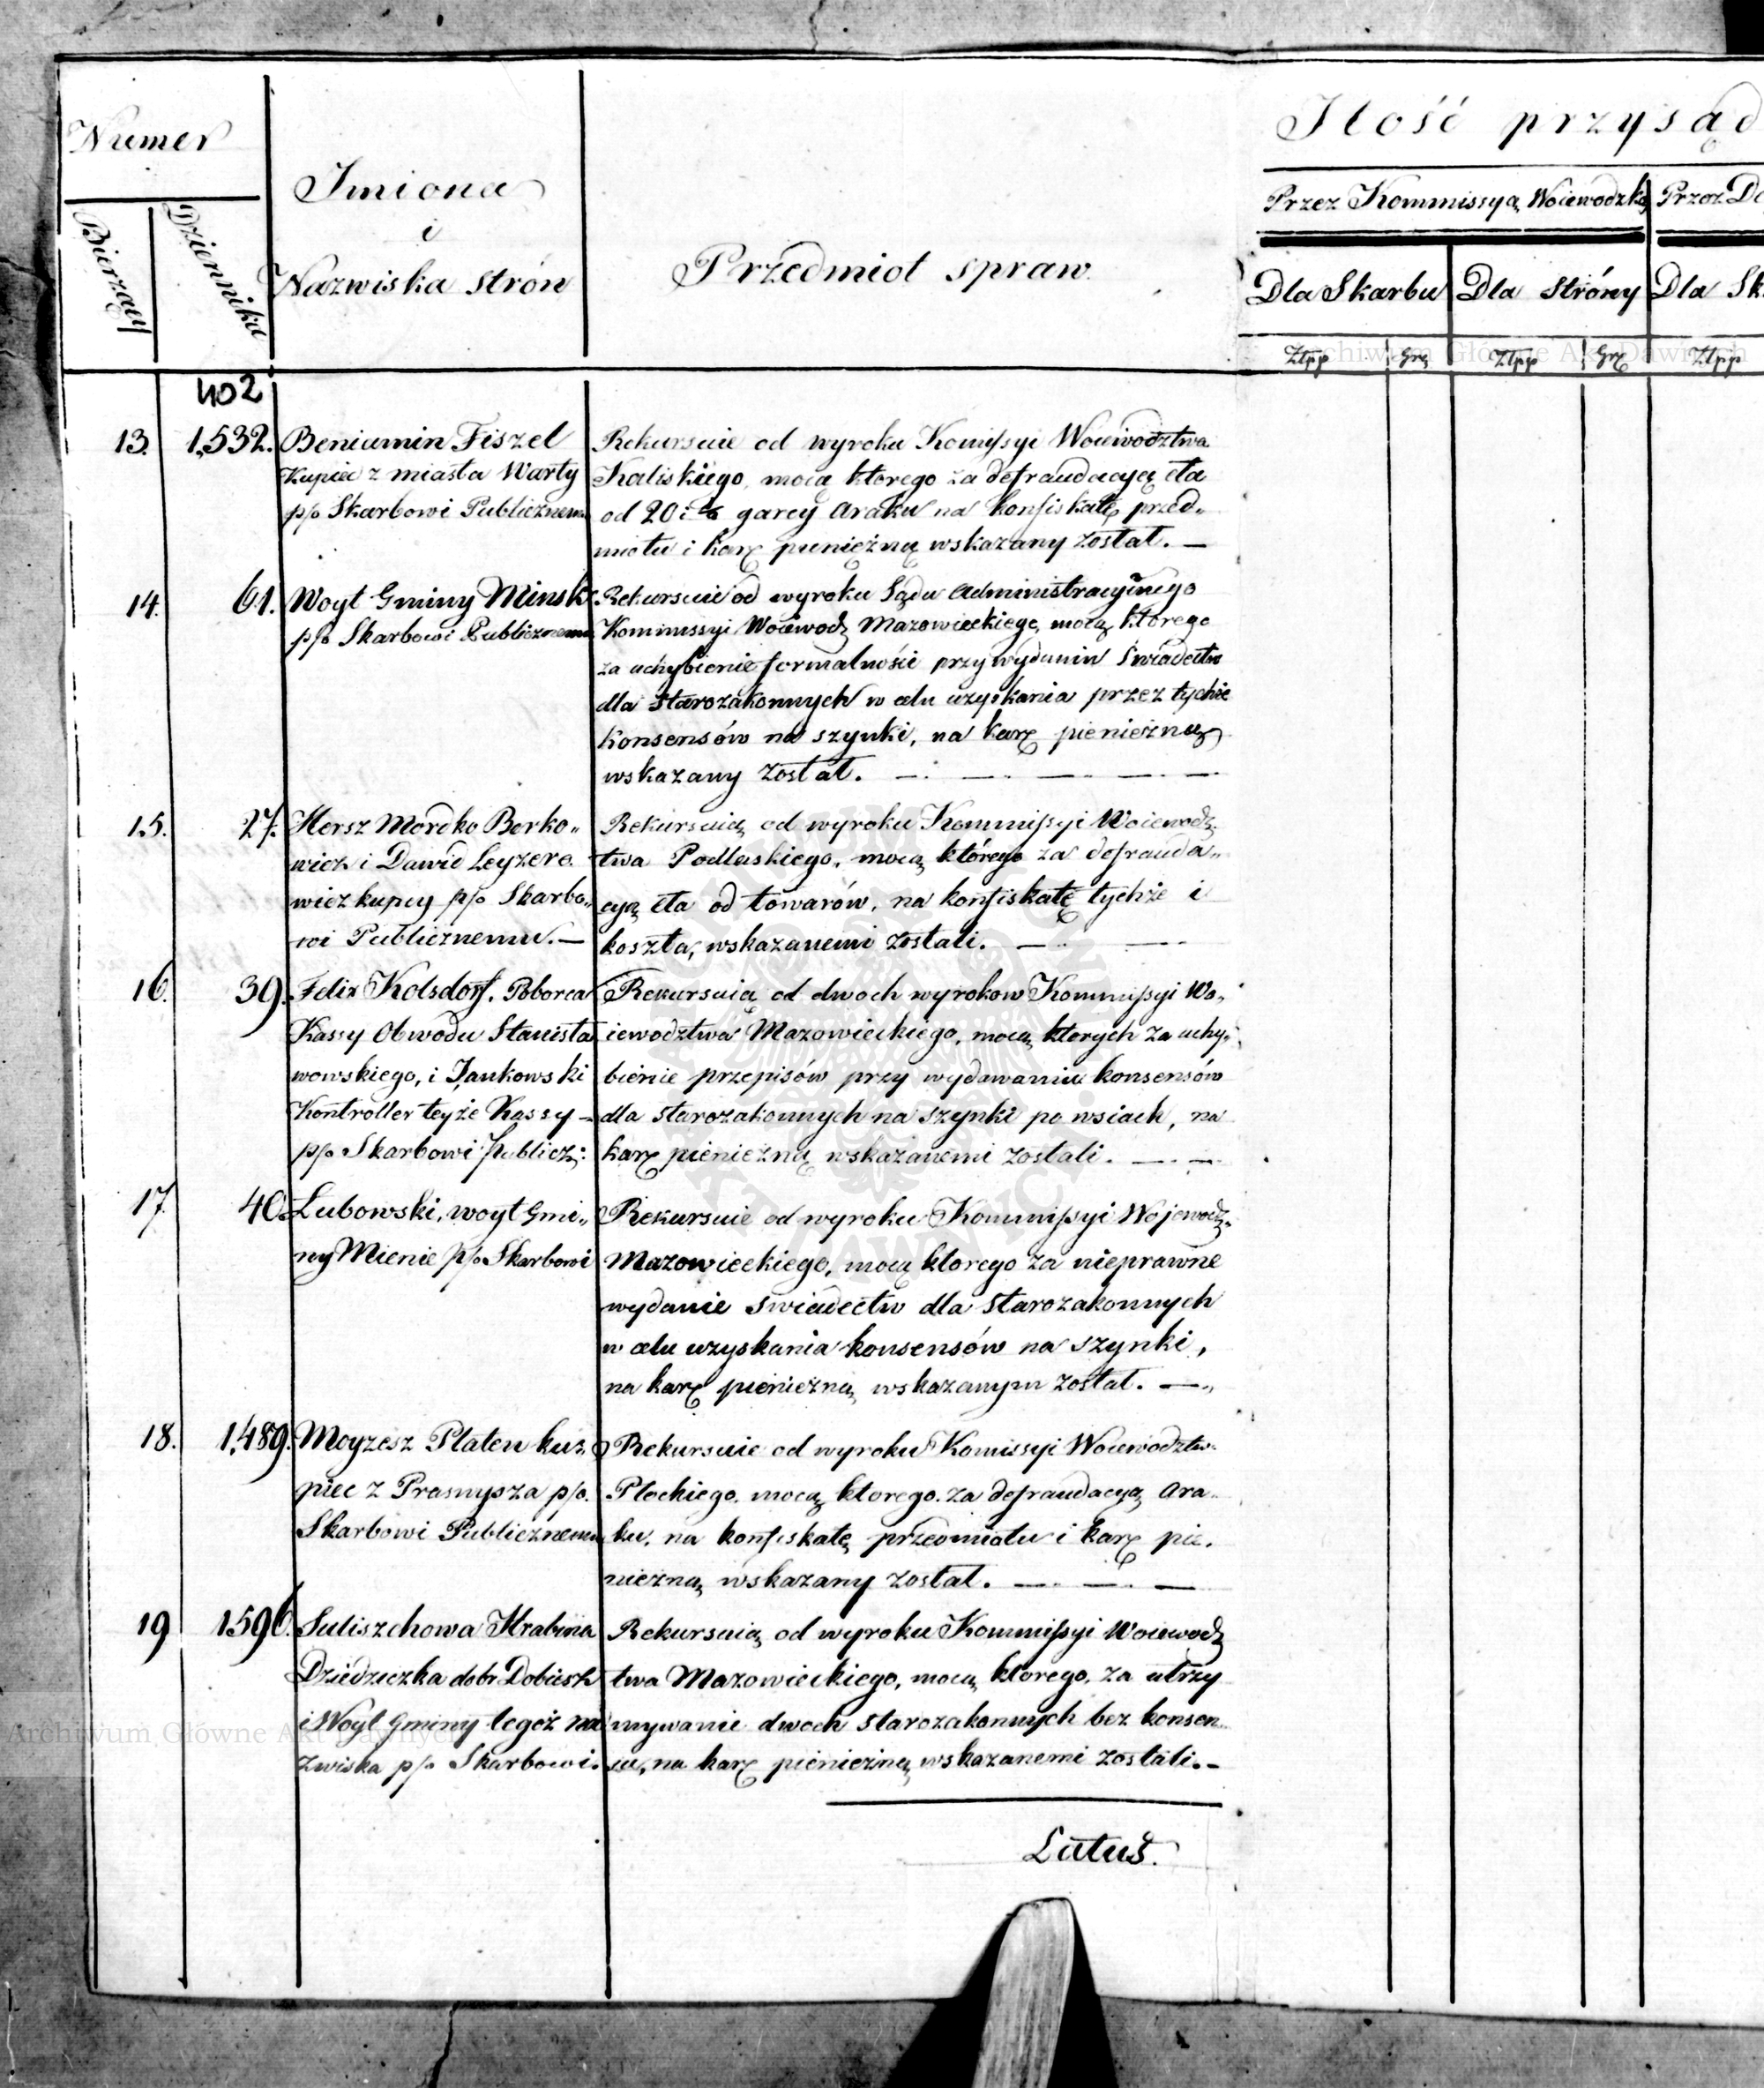 Numer
Bierzący
Dziennika
Imiona
i
Nazwiska Strón
Przedmiot spraw.
Ilość przysąd
Przez Kommissyą Woiewodzką
Przez De
Dla Skarbu
Dla Stróny
Dla Sk
Złpp Grę Złpp Grę Złpp
402
13. 1,532. Beniamin Fiszel
Kupiec z miasta Warty
p/o Skarbowi Publicznemu
Rekursuie od wyroku Komissyi Woiewodztwa
Kaliskiego, mocą ktorego za defraudacyą cła
od 20 i garcy Araku na konfiskatę przed„
miotu i karę pieniężną wskazany został. —
14. 61. Woyt Gminy Minsk
p/o Skarbowi Publicznemu
Rekursuie od wyroku Sądu Administracyinego
Kommissyi Woiewodz Mazowieckiego, mocą ktorego
za uchybienie formalności przy wydaniu Świadectw
dla Starozakonnych w celu uzyskania przez tychże
Konsensów na szynki, na karę pieniężną
wskazany został. — — — — —
15. 27. Hersz Mordko Berko„
wicz i Dawid Leyzero
wicz kupcy p/o Skarbo„
wi Publicznemu. —
Rekursuią od wyroku Kommissyi Woiewodz„
twa Podlaskiego, mocą którego za defrauda„
cyą cła od towarów, na konfiskatę tychże i
koszta, wskazanemi zostali. — —
16. 39. Felix Kolsdorf, Poborca
Kassy Obwodu Stanisła
wowskiego, i Jankowski
Kontroller teyże Kassy —
p/o Skarbowi Publicz:
Rekursuią od dwoch wyrokow Kommissyi Wo„
iewodztwa Mazowieckiego, mocą ktorych za uchy„
bienie przepisów przy wydawaniu konsensów
dla starozakonnych na szynki po wsiach, na
karę pieniężną wskazanemi zostali. — —
17. 40. Lubowski, woyt Gmi„
ny Mienie p/o Skarbowi
Rekursuie od wyroku Kommissyi Wojewodz„
Mazowieckiego, mocą ktorego za nieprawne
wydanie swiadectw dla starozakonnych
w celu uzyskania konsensów na szynki,
na karę pieniężną wskazanym został. —
18. 1,489. Moyzesz Platen ku„
piec z Prasnysza p/o.
Skarbowi Publicznemu
Rekursuie od wyroku Komissyi Woiewodztw
Płockiego, mocą ktorego za defraudacyą Ara„
ku, na konfiskatę przedmiotu i karę pie„
niężną wskazany został. — — —
19 1596. Suliszchowa Hrabina
Dziedziczka dobr Dobiesz
i Woyt Gminy tegoż na
zwiska p/o Skarbowi.
Rekursuią od wyroku Kommissyi Woiewodz
twa Mazowieckiego, mocą ktorego, za utrzy
mywanie dwoch starozakonnych bez konsen„
su, na karę pieniężną wskazanemi zostali. —
Latus.
Archiwum Główne Akt Dawnych
Archiwum Główne Akt Dawnych